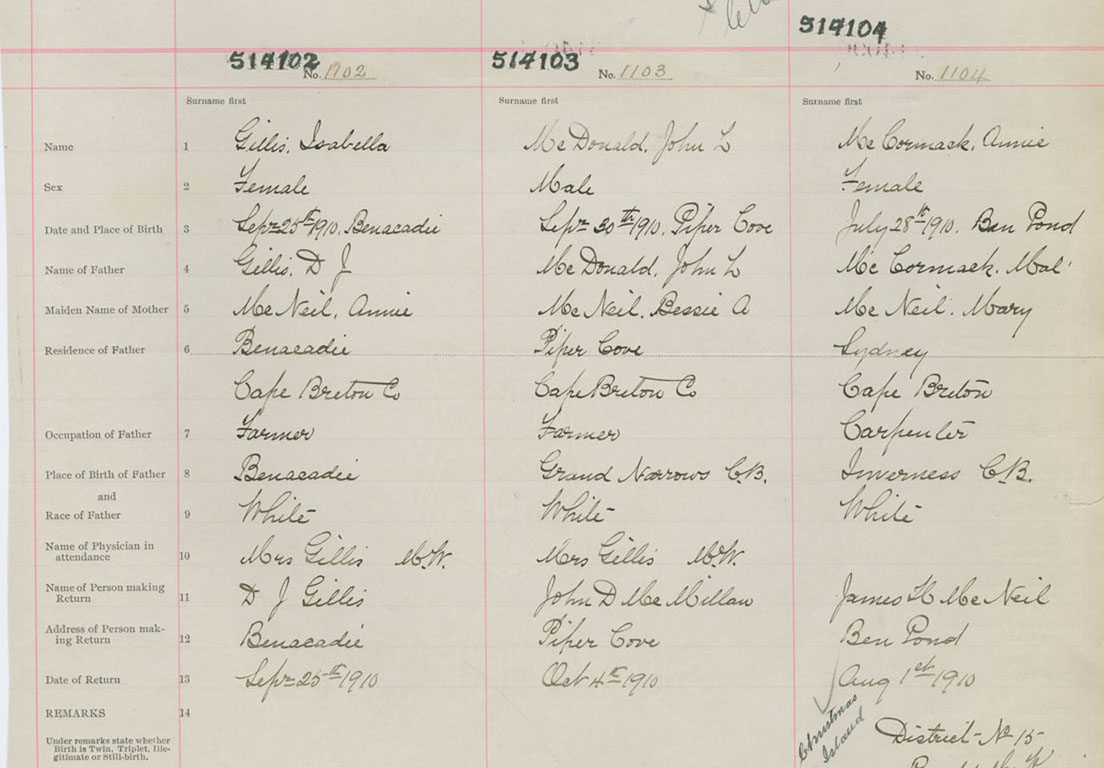 514102 No. 1102
514103 No. 1103
514104 No. 1104
Surname first Surname first Surname first
Name 1 Gillis, Isabella McDonald, John L McCormack, Annie
Sex 2 Female Male Female
Date and Place of Birth 3 Sepr 25th 1910, Benacadie Sepr 30th 1910, Piper Cove July 28th 1910, Ben Pond
Name of Father 4 Gillis, D J McDonald, John L McCormack, Mal'
Maiden Name of Mother 5 McNeil, Annie McNeil, Bessie A McNeil, Mary
Residence of Father 6 Benacadie Piper Cove Sydney
Cape Breton Co Cape Breton Co Cape Breton
Occupation of Father 7 Farmer Farmer Carpenter
Place of Birth of Father 8 Benacadie Grand Narrows C.B. Inverness C.B.
and
Race of Father 9 White White White
Name of Physician in
attendance 10 Mrs Gillis M.W. Mrs Gillis M.W.
Name of Person making
Return 11 D J Gillis John D McMillan James H McNeil
Address of Person mak-
ing Return 12 Benacadie Piper Cove Ben Pond
Date of Return 13 Sepr 25th 1910 Oct 4th 1910 Aug 1st 1910
REMARKS 14
Christmas
Island
District No 15
Under remarks state whether
Birth is Twin, Triplet, Ille-
gitimate or Still-birth.